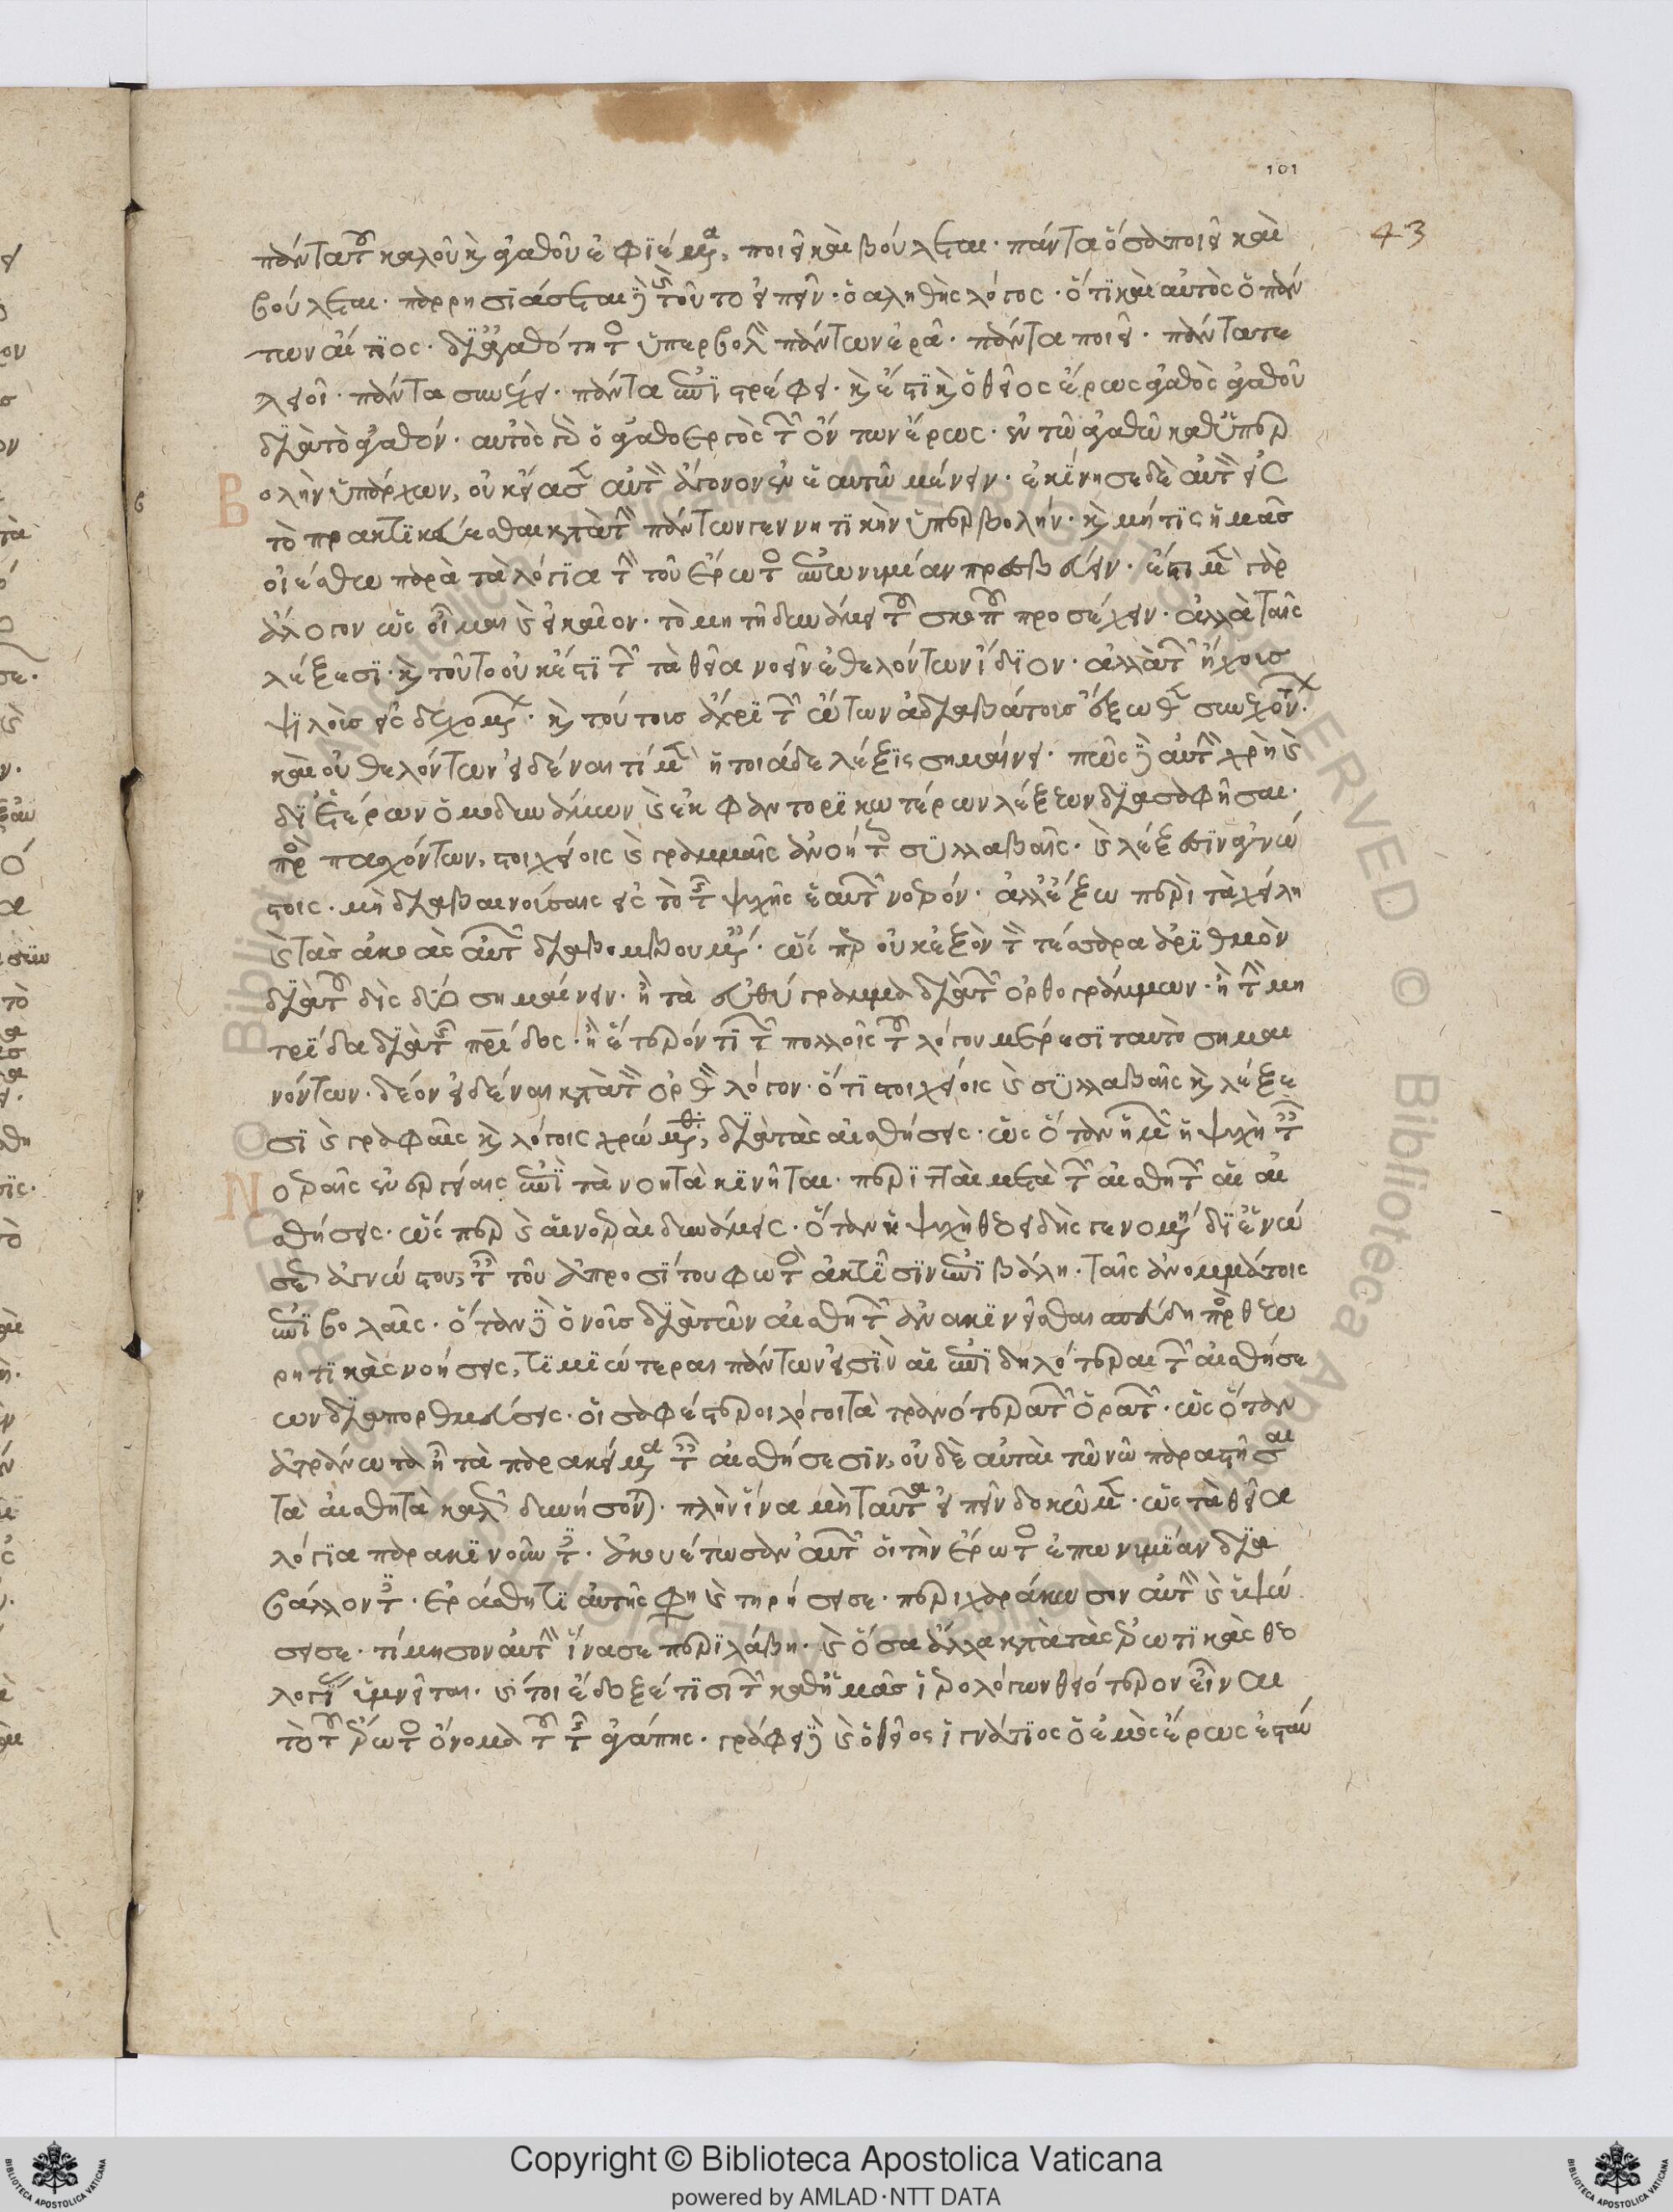 πάντα τοῦ καλοῦ καὶ ἀγαθοῦ ἐφιέμενα, ποιεῖ καὶ βούλεται· πάντα ὅσα ποιεῖ καὶ
βούλεται· παρρησιάσεται δὲ καὶ τοῦτο εἰπεῖν· ὁ ἀληθὴς λόγος· ὅτι καὶ αὐτὸς ὁ πάν
των αἴτιος· δι' ἀγαθότητος ὑπερβολὴν πάντων ἐρᾶ· πάντα ποιεῖ· πάντα τε
λειοῖ· πάντα συνέχει· πάντα ἐπιστρέφει· καὶ ἔστι καὶ ὁ θεῖος ἔρως ἀγαθὸς ἀγαθοῦ
διὰ τὸ ἀγαθόν· αὐτὸς γὰρ ὁ ἀγαθοεργὸς τῶν ὄντων ἔρως· ἐν τῶ ἀγαθῶ καθ' ὑπερβ
ολὴν ὑπάρχων, οὐκ εἴασεν αὐτὸν ἄγονον ἐν ἑαυτῶ μένειν· ἐκίνησε δὲ αὐτὸν εἰς
τὸ πρακτικεύεσθαι κατὰ τὴν πάντων γεννητικὴν ὑπερβολήν· καὶ μή τις ἡμᾶς
οἰέσθω παρὰ τὰ λόγια τὴν τοῦ ἔρωτος ἐπωνυμίαν πρεσβεύειν· ἔστι μὲν γὰρ
ἄλογον ὡς οἶμαι καὶ σκαιον· τὸ μὴ τῆ δυνάμει τοῦ σκοποῦ προσέχειν· ἀλλὰ ταῖς
λέξεσι· καὶ τοῦτο οὐκ ἔστι τῶν τὰ θεῖα νοεῖν ἐθελόντων ἴδιον· ἀλλὰ τῶν ἤχους
ψιλοὺς εἰσδεχομένων· καὶ τούτους ἄχρι τῶν ὤτων ἀδιαβάτους ἔξωθεν συνεχόντων·
καὶ οὐ θελόντων εἰδέναι τί μὲν ἡ τοιάδε λέξις σημαίνει· πῶς δὲ αὐτὴν χρὴ καὶ
δι' ἑτέρων ὁμοδυνάμων καὶ ἐκφαντορικωτέρων λέξεων διασαφῆσαι·
προσπασχόντων, στοιχείοις καὶ γραμμαῖς ἀνοήτοις συλλαβαῖς· καὶ λέξεσιν ἀγνώ
στοις· μὴ διαβαινούσαις εἰς τὸ τῆς ψυχῆς ἑαυτῶν νοερόν· ἀλλ' ἔξω περὶ τὰ χείλη
καὶ τὰς ἀκοὰς αὐτῶν διαβομβουμέναις· ὥσπερ οὐκ ἐξὸν τὸν τέσσαρα ἀριθμὸν
διὰ τοῦ δὶς δύο σημαίνειν· ἢ τὰ εὐθύγραμμα διὰ τῶν ὀρθογράμμων· ἢ τὴν μη
τρίδα διὰ τῆς πατρίδος· ἢ ἕτερόν τι τῶν πολλοῖς τοῦ λόγου μέρεσι ταυτὸ σημαι
νόντων· δέον εἰδέναι κατὰ τὸν ὀρθὸν λόγον· ὅτι στοιχείοις καὶ συλλαβαῖς καὶ λέξε
σι καὶ γραφαῖς καὶ λόγοις χρώμεθα, διὰ τὰς αἰσθήσεις· ὡς ὅταν ἡμῶν ἡ ψυχὴ ταῖς
οεραῖς ἐνεργείαις ἐπὶ τὰ νοητὰ κινῆται· περιτταὶ μετὰ τῶν αἰσθητῶν αἱ αἰ
σθήσεις· ὥσπερ καὶ αἱ νοεραὶ δυνάμεις· ὅταν ἡ ψυχὴ θεοειδὴς γενομένη δι' ἑνώ
σεως ἀγνώστου, ταῖς τοῦ ἀπροσίτου φωτὸς ἀκτῖσιν ἐπιβάλη· ταῖς ἀνομμάτοις
ἐπιβολαῖς· ὅταν δὲ ὁ νοῦς διὰ τῶν αἰσθητῶν ἀνακινεῖσθαι σπεύδη πρὸς θεω
ρητικὰς νοήσεις, τιμιώτεραι πάντων εἰσὶν αἱ ἐπιδηλότεραι τῶν αἰσθήσε
ων διαπορθμεύσεις· οἱ σαφέστεροι λόγοι τὰ τρανότερα τῶν ὁρατῶν· ὡς ὅταν
ἀτράνωτα ἦ τὰ παρακείμενα ταῖς αἰσθήσεσιν, οὐδὲ αὐταὶ τῶ νῶ παραστῆσαι
τὰ αἰσθητὰ καλῶς δυνήσονται· πλὴν ἵνα μὴ ταῦτα εἰπεῖν δοκῶμεν· ὡς τὰ θεῖα
λόγια παρακινοῦντες· ἀκουέτωσαν αὐτῶν οἱ τὴν ἔρωτος ἐπωνυμίαν δια
βάλλοντες· ἐράσθητι αὐτῆς φησὶ καὶ τηρήσει σε· περιχαράκωσον αὐτὴν καὶ ὑψώ
σει σε· τίμησον αὐτὴν ἵνα σε περιλάβη· καὶ ὅσα ἄλλα κατὰ τὰς ἐρωτικὰς θεο
λογίας ὑμνεῖται· καίτοι ἔδοξέ τισι τῶν καθ' ἡμᾶς ἱερολόγων θειότερον εἶναι
τὸ τοῦ ἔρωτος ὄνομα τοῦ τῆς ἀγάπης· γράφει δὲ καὶ ὁ θεῖος ἰγνάτιος ὁ ἐμὸς ἔρως ἐσταύ